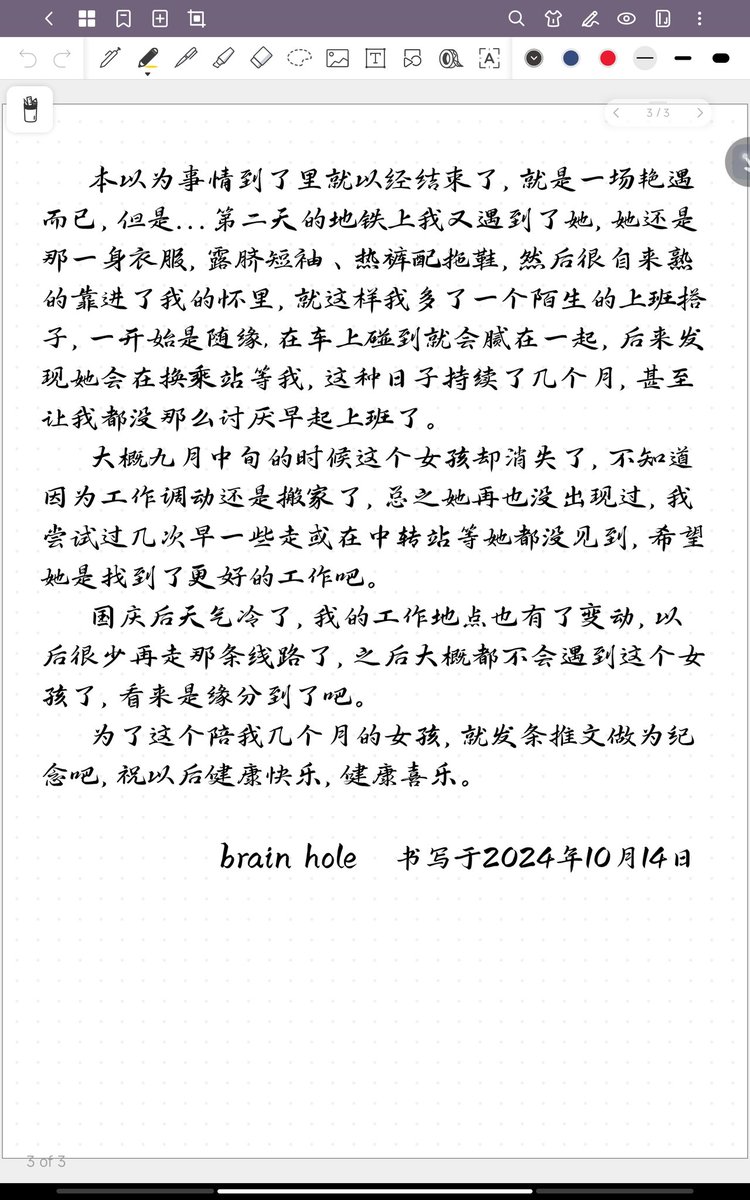 3/3
本以为事情到了里就以经结束了, 就是一场艳遇
而已, 但是...第二天的地铁上我又遇到了她, 她还是
那一身衣服, 露脐短袖、热裤配拖鞋, 然后很自来熟
的靠进了我的怀里, 就这样我多了一个陌生的上班搭
子, 一开始是随缘, 在车上碰到就会腻在一起, 后来发
现她会在换乘站等我, 这种日子持续了几个月, 甚至
让我都没那么讨厌早起上班了。
大概九月中旬的时候这个女孩却消失了, 不知道
因为工作调动还是搬家了, 总之她再也没出现过, 我
尝试过几次早一些走或在中转站等她都没见到, 希望
她是找到了更好的工作吧。
国庆后天气冷了, 我的工作地点也有了变动, 以
后很少再走那条线路了, 之后大概都不会遇到这个女
孩了, 看来是缘分到了吧。
为了这个陪我几个月的女孩, 就发条推文做为纪
念吧, 祝以后健康快乐, 健康喜乐。
brain hole 书写于2024年10月14日
3 of 3